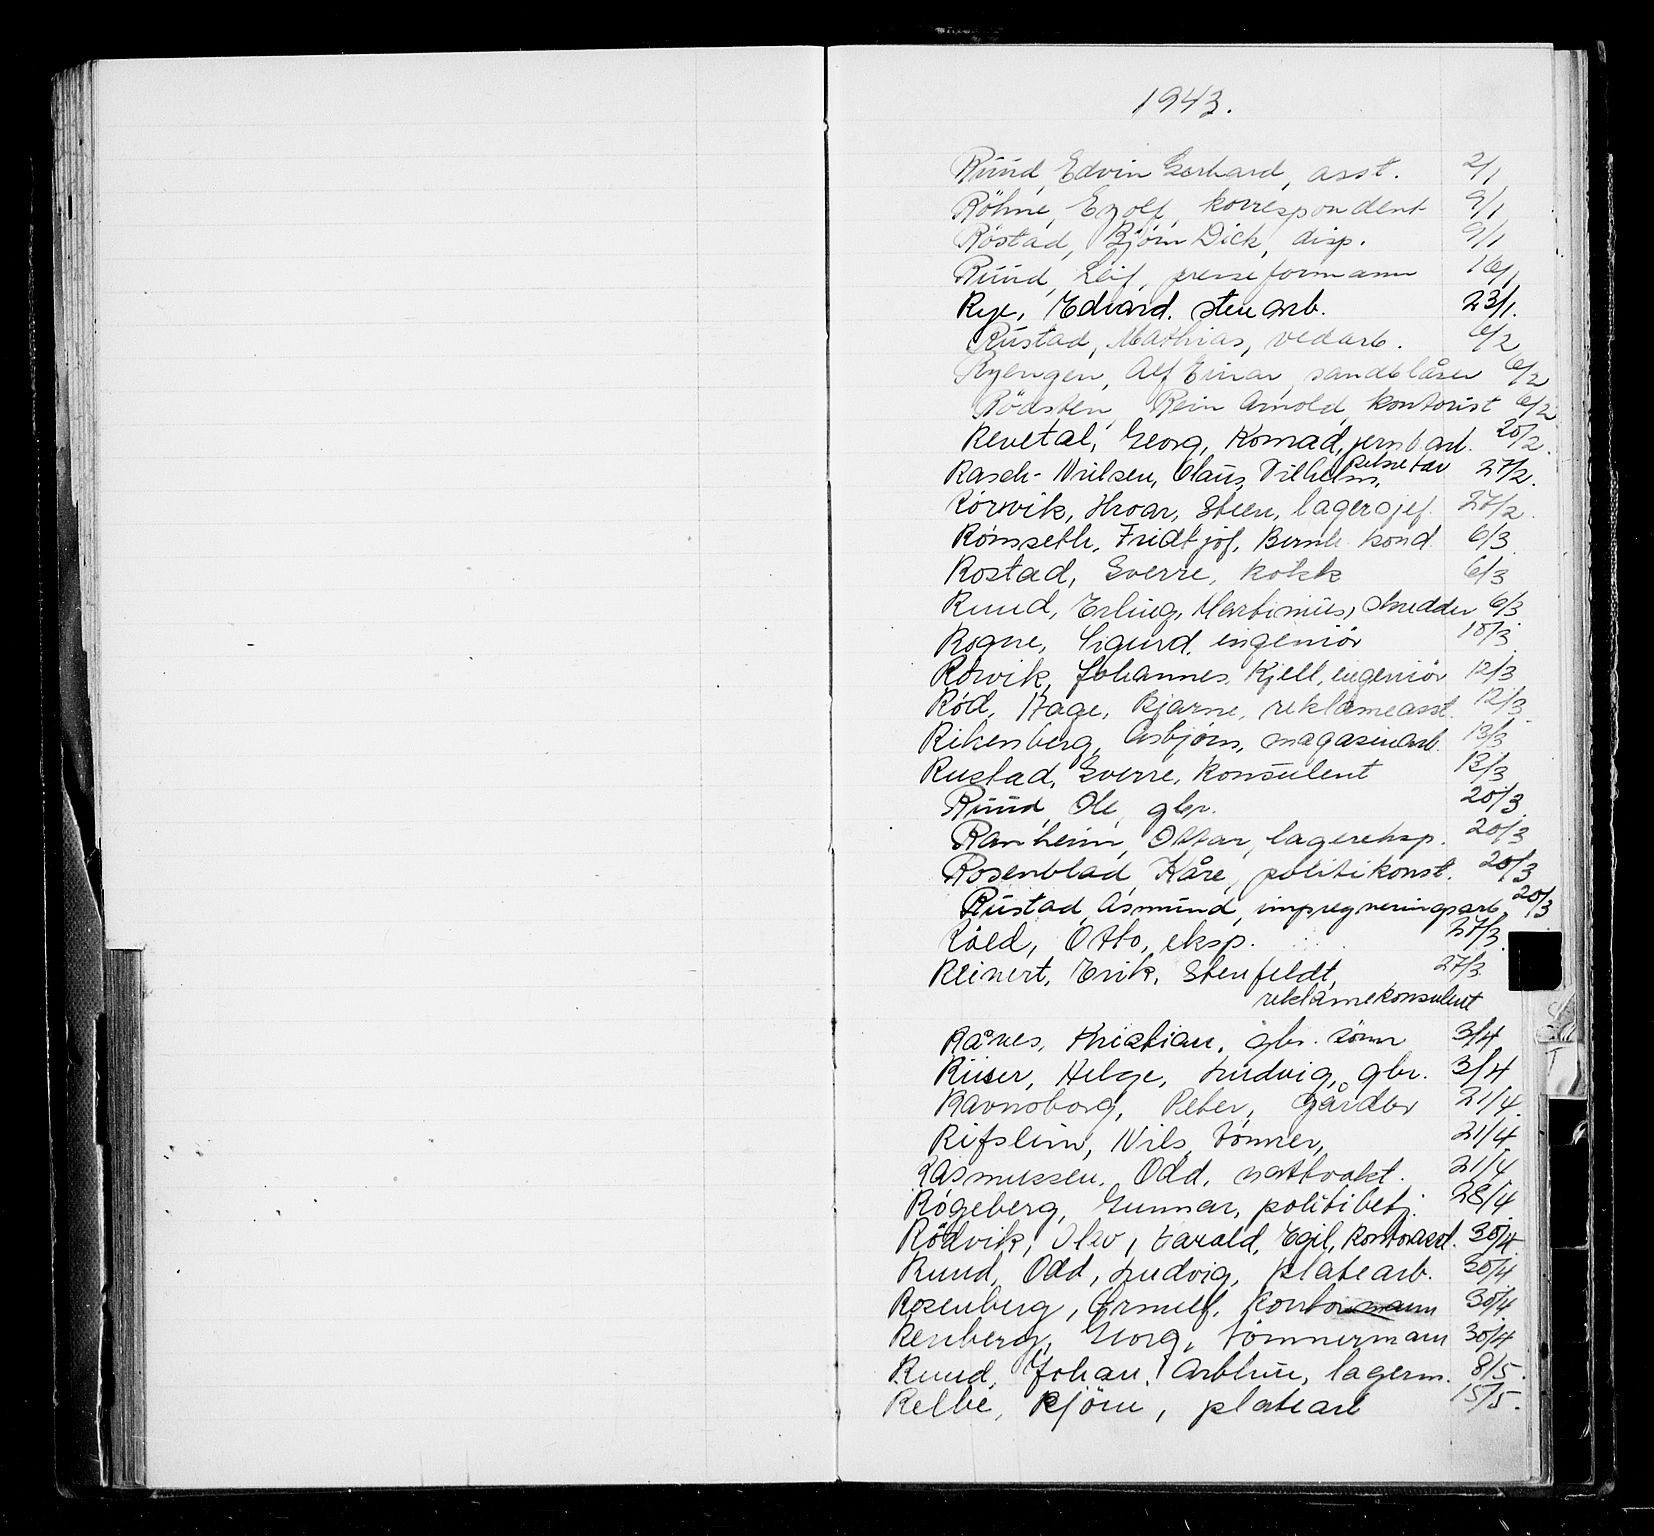 1943.
Ruud, Edvin Gerhard, asst. 2/1
Röhne, Eyolf, korrespondent 9/1
Röstad, Björn Dick, disp. 9/1
Ruud, Leif, presseformann 16/1
Rye, Edvard. stenarb. 23/1.
Rustad, Mathias, vedarb. 6/2
Ryengen, Alf Einar, sandblåser 6/2
Rödsten, Rein Arnold, kontorist 6/2
Revetal, Georg, Konrad, jernbarb. 20/2.
Rasch-Nielsen, Claus, Vilhelm, sekretær 27/2.
Rörvik, Hroar, Steen, lagersjef. 27/2.
Römseth, Fridtjof, Bernh. kond. 6/3.
Rostad, Sverre, kokk 6/3
Ruud, Erling, Martinius, skredder 6/3
Rogne, Sigurd, ingeniör 10/3.
Rörvik, Johannes, Kjell, ingeniör 12/3
Röd, Hage, Bjarne, reklameasst. 12/3.
Rikenberg, Asbjörn, magasinarb. 13/3.
Rustad, Sverre, konsulent 13/3.
Ruud, Ole, gbr. 20/3
Ranheim, Ottar, lagereksp. 20/3
Rosenblad, Kåre, politikonst. 20/3
Rustad, Asmund, impregneringsarb. 20/3
Röed, Otto, eksp. 27/3.
Reinert, Erik, Stenfeldt, 27/3.
reklamekonsulent
Rånes, Kristian, gbr. sönn 3/4
Riiser, Helge, Ludvig, gbr. 3/4
Ravnsborg, Peter, gårdbr 21/4.
Rifslim, Nils, tömrer, 21/4.
Rasmussen, Odd, nattvakt. 21/4
Rögeberg, Gunnar, politibetj. 28/4
Rödvik, Olav, Harald, Egil, kontorasst. 30/4.
Ruud, Odd, Ludvig, platearb. 30/4.
Rosenberg, Arnulf, kontormann 30/4.
Renberg, Georg, tömmermann 30/4
Ruud, Johan, Arthur, lagerm. 8/5.
Relbe, Björn, platearb 15/5.